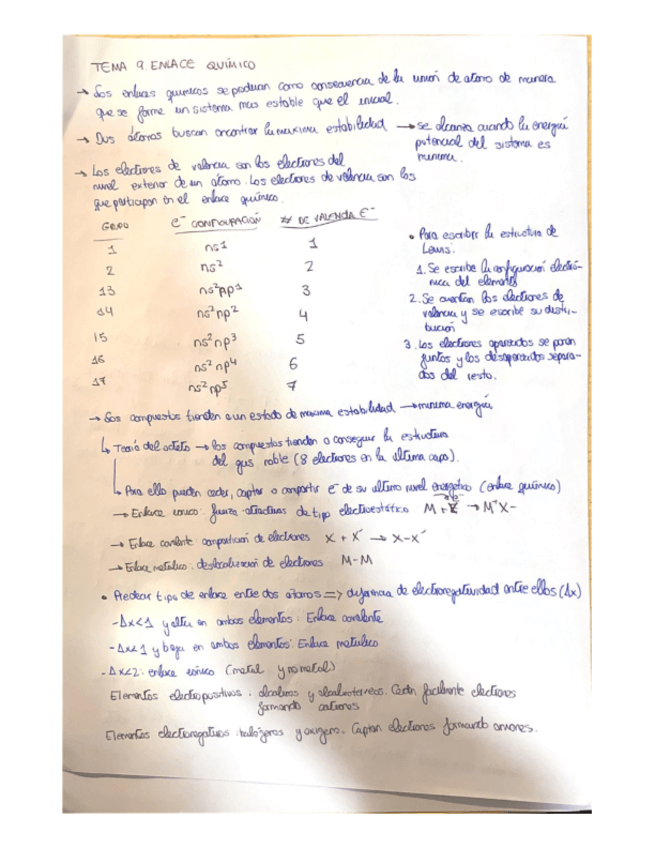 TEMA 9. ENLACE QUÍMICO
→ Los enlaces químicos se producen como consecuencia de la unión de átomo de manera
que se forme un sistema mas estable que el inicial.
→ Dos átomos buscan encontrar la maxima estabilidad → se alcanza cuando la energía
potencial del sistema es
minima.
→ Los electrones de valencia son los electrones del
nivel exterior de un átomo. Los electrones de valencia son los
que participan en el enlace químico.
GRUPO e⁻ CONFIGURACIÓN # DE VALENCIA e⁻
1 ns1 1
2 ns² 2
13 ns²np1 3
14 ns²np² 4
15 ns²np³ 5
16 ns²np⁴ 6
17 ns²np⁵ 7
• Para escribir la estructura de
Lewis.
1. Se escribe la configuración electró-
nica del elemento
2. Se cuentan los electrones de
valencia y se escribe su distri-
bución
3. Los electrones apareados se ponen
juntos y los desapareados separa-
dos del resto.
→ Los compuestos tienden a un estado de maxima estabilidad → minima energía
↳ Teoría del octeto → los compuestos tienden a conseguir la estructura
del gas noble (8 electrones en la ultima capa).
↳ Para ello pueden ceder, captar o compartir e⁻ de su ultimo nivel energetico (enlace químico)
→ Enlace ionico: fuerza atractivas de tipo electroestático M + X → M⁺X-
→ Enlace covalente compartición de electrones X + X´ → X-X´
→ Enlace metalico: deslocalización de electrones M-M
• Predecir tipo de enlace entre dos átomos => diferencia de electronegatividad entre ellos (Δx)
- Δx<1 y alta en ambos elementos: Enlace covalente
- Δx<1 y baja en ambos elementos: Enlace metalico
- Δx<2: enlace ionico (metal y no metal)
Elementos electropositivos: alcalinos y alcalinoterreos. Ceden facilmente electrones
formando cationes
Elementos electronegativos: halógenos y oxigeno. Captan electrones formando aniones.